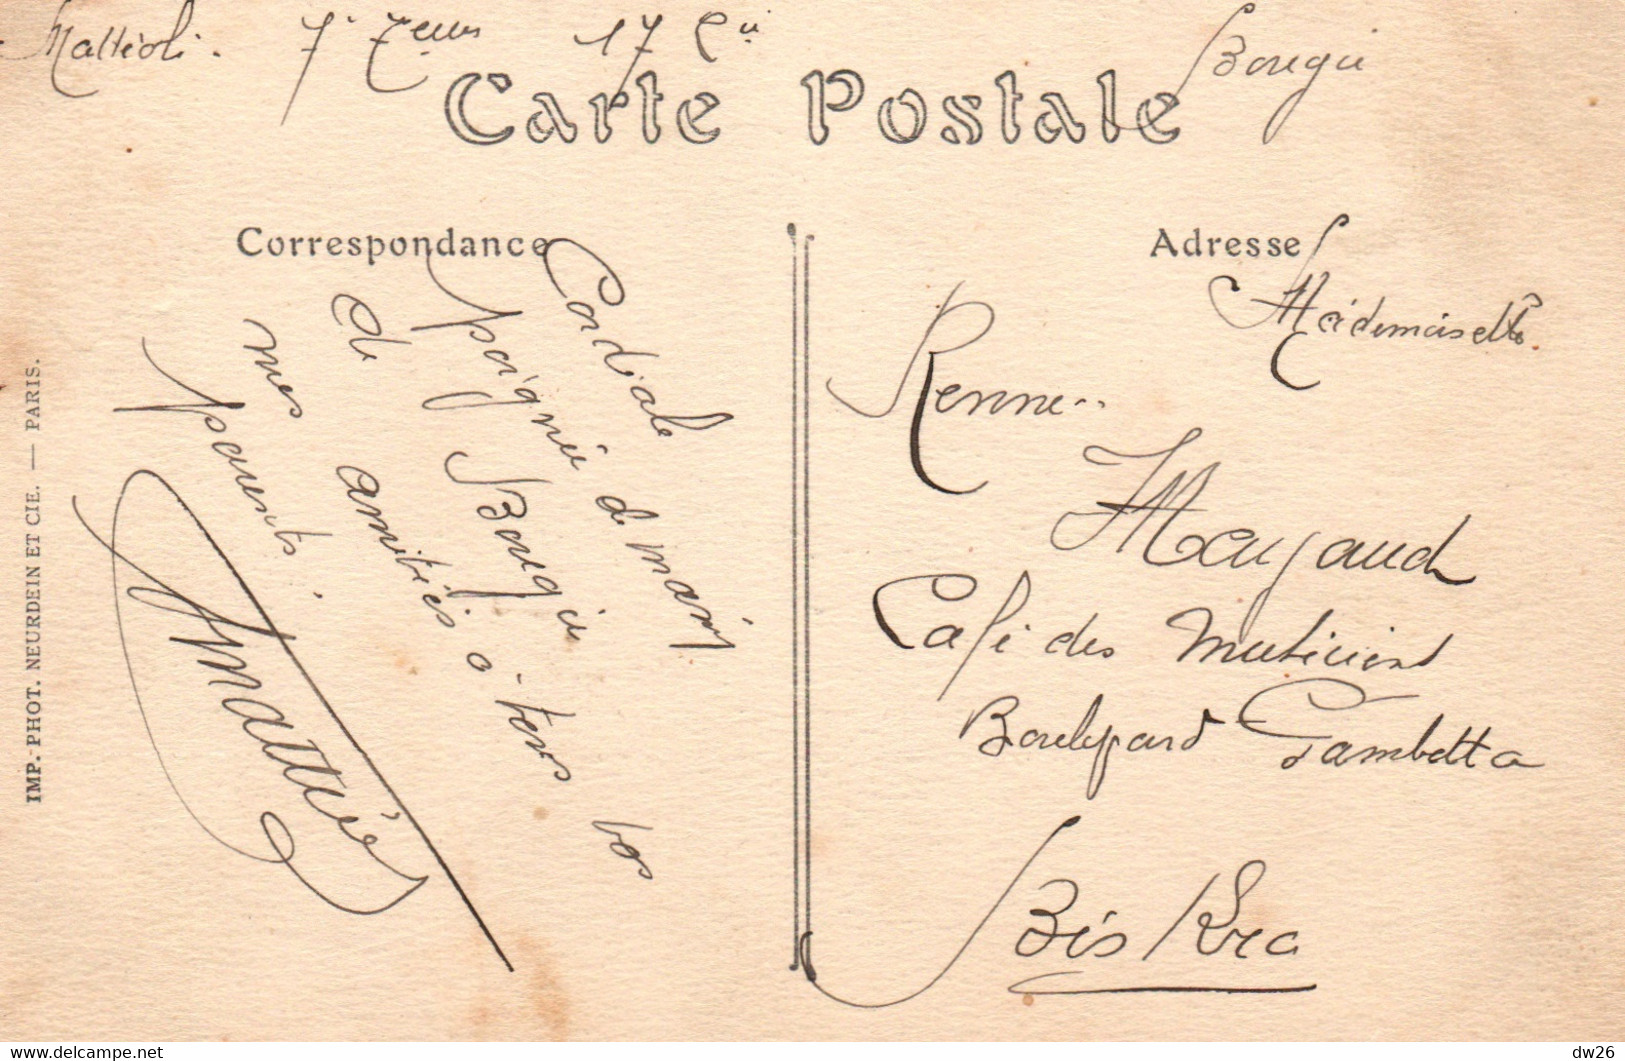 Matteoli. 7e Zeus 17 Cie Bougie
Carte Postale
Correspondance
Cordiale
poignée de main
de Bougie
mes amitiés à tous vos
parents.
Adresse
Mademoiselle
Renne
Mayaud
Café des Musiciens
Boulevard Gambetta
Biskra
IMP.-PHOT. NEURDEIN ET CIE. — PARIS.
www.delcampe.net
dw26